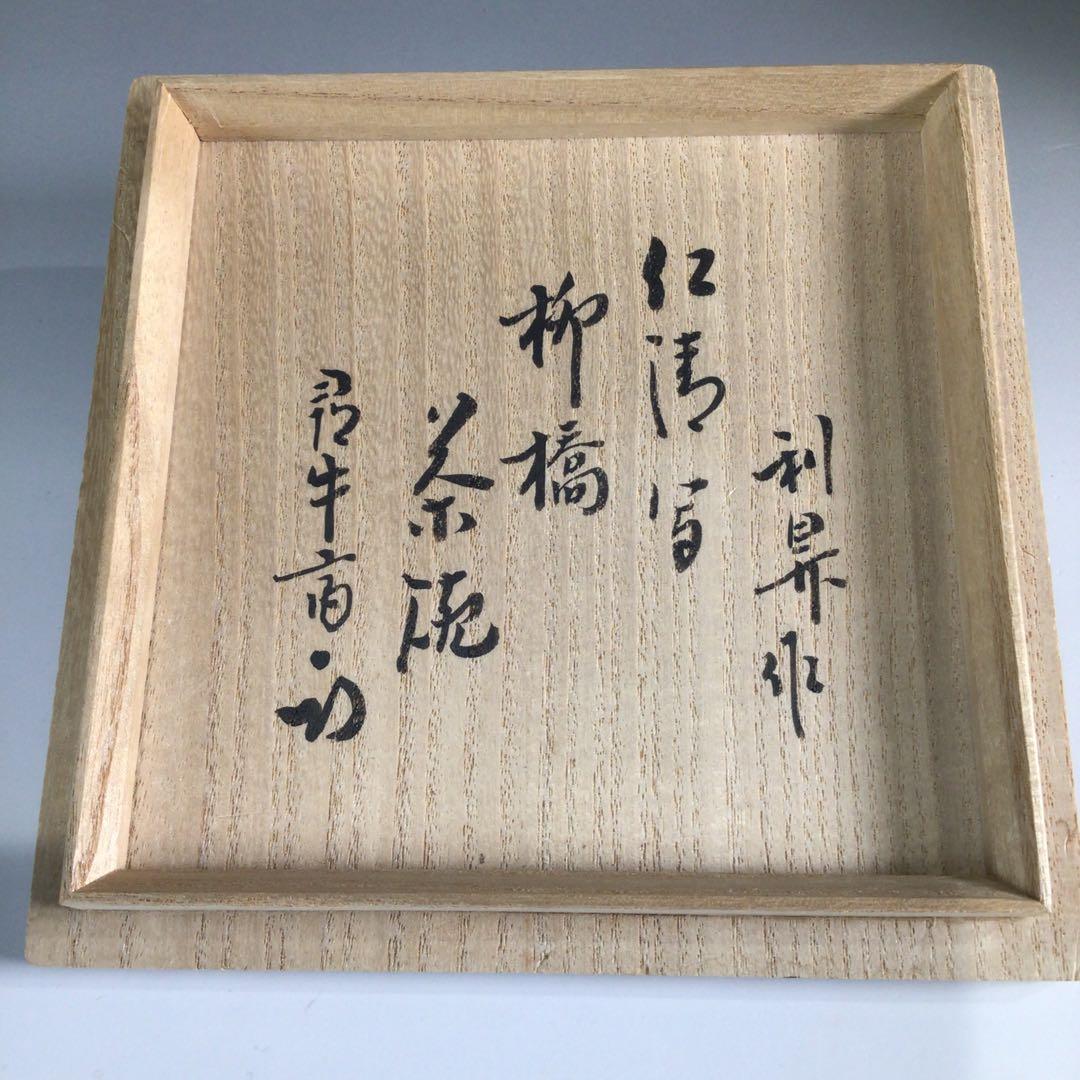 利昇作
仁清写
柳橋
茶碗
尋牛斎